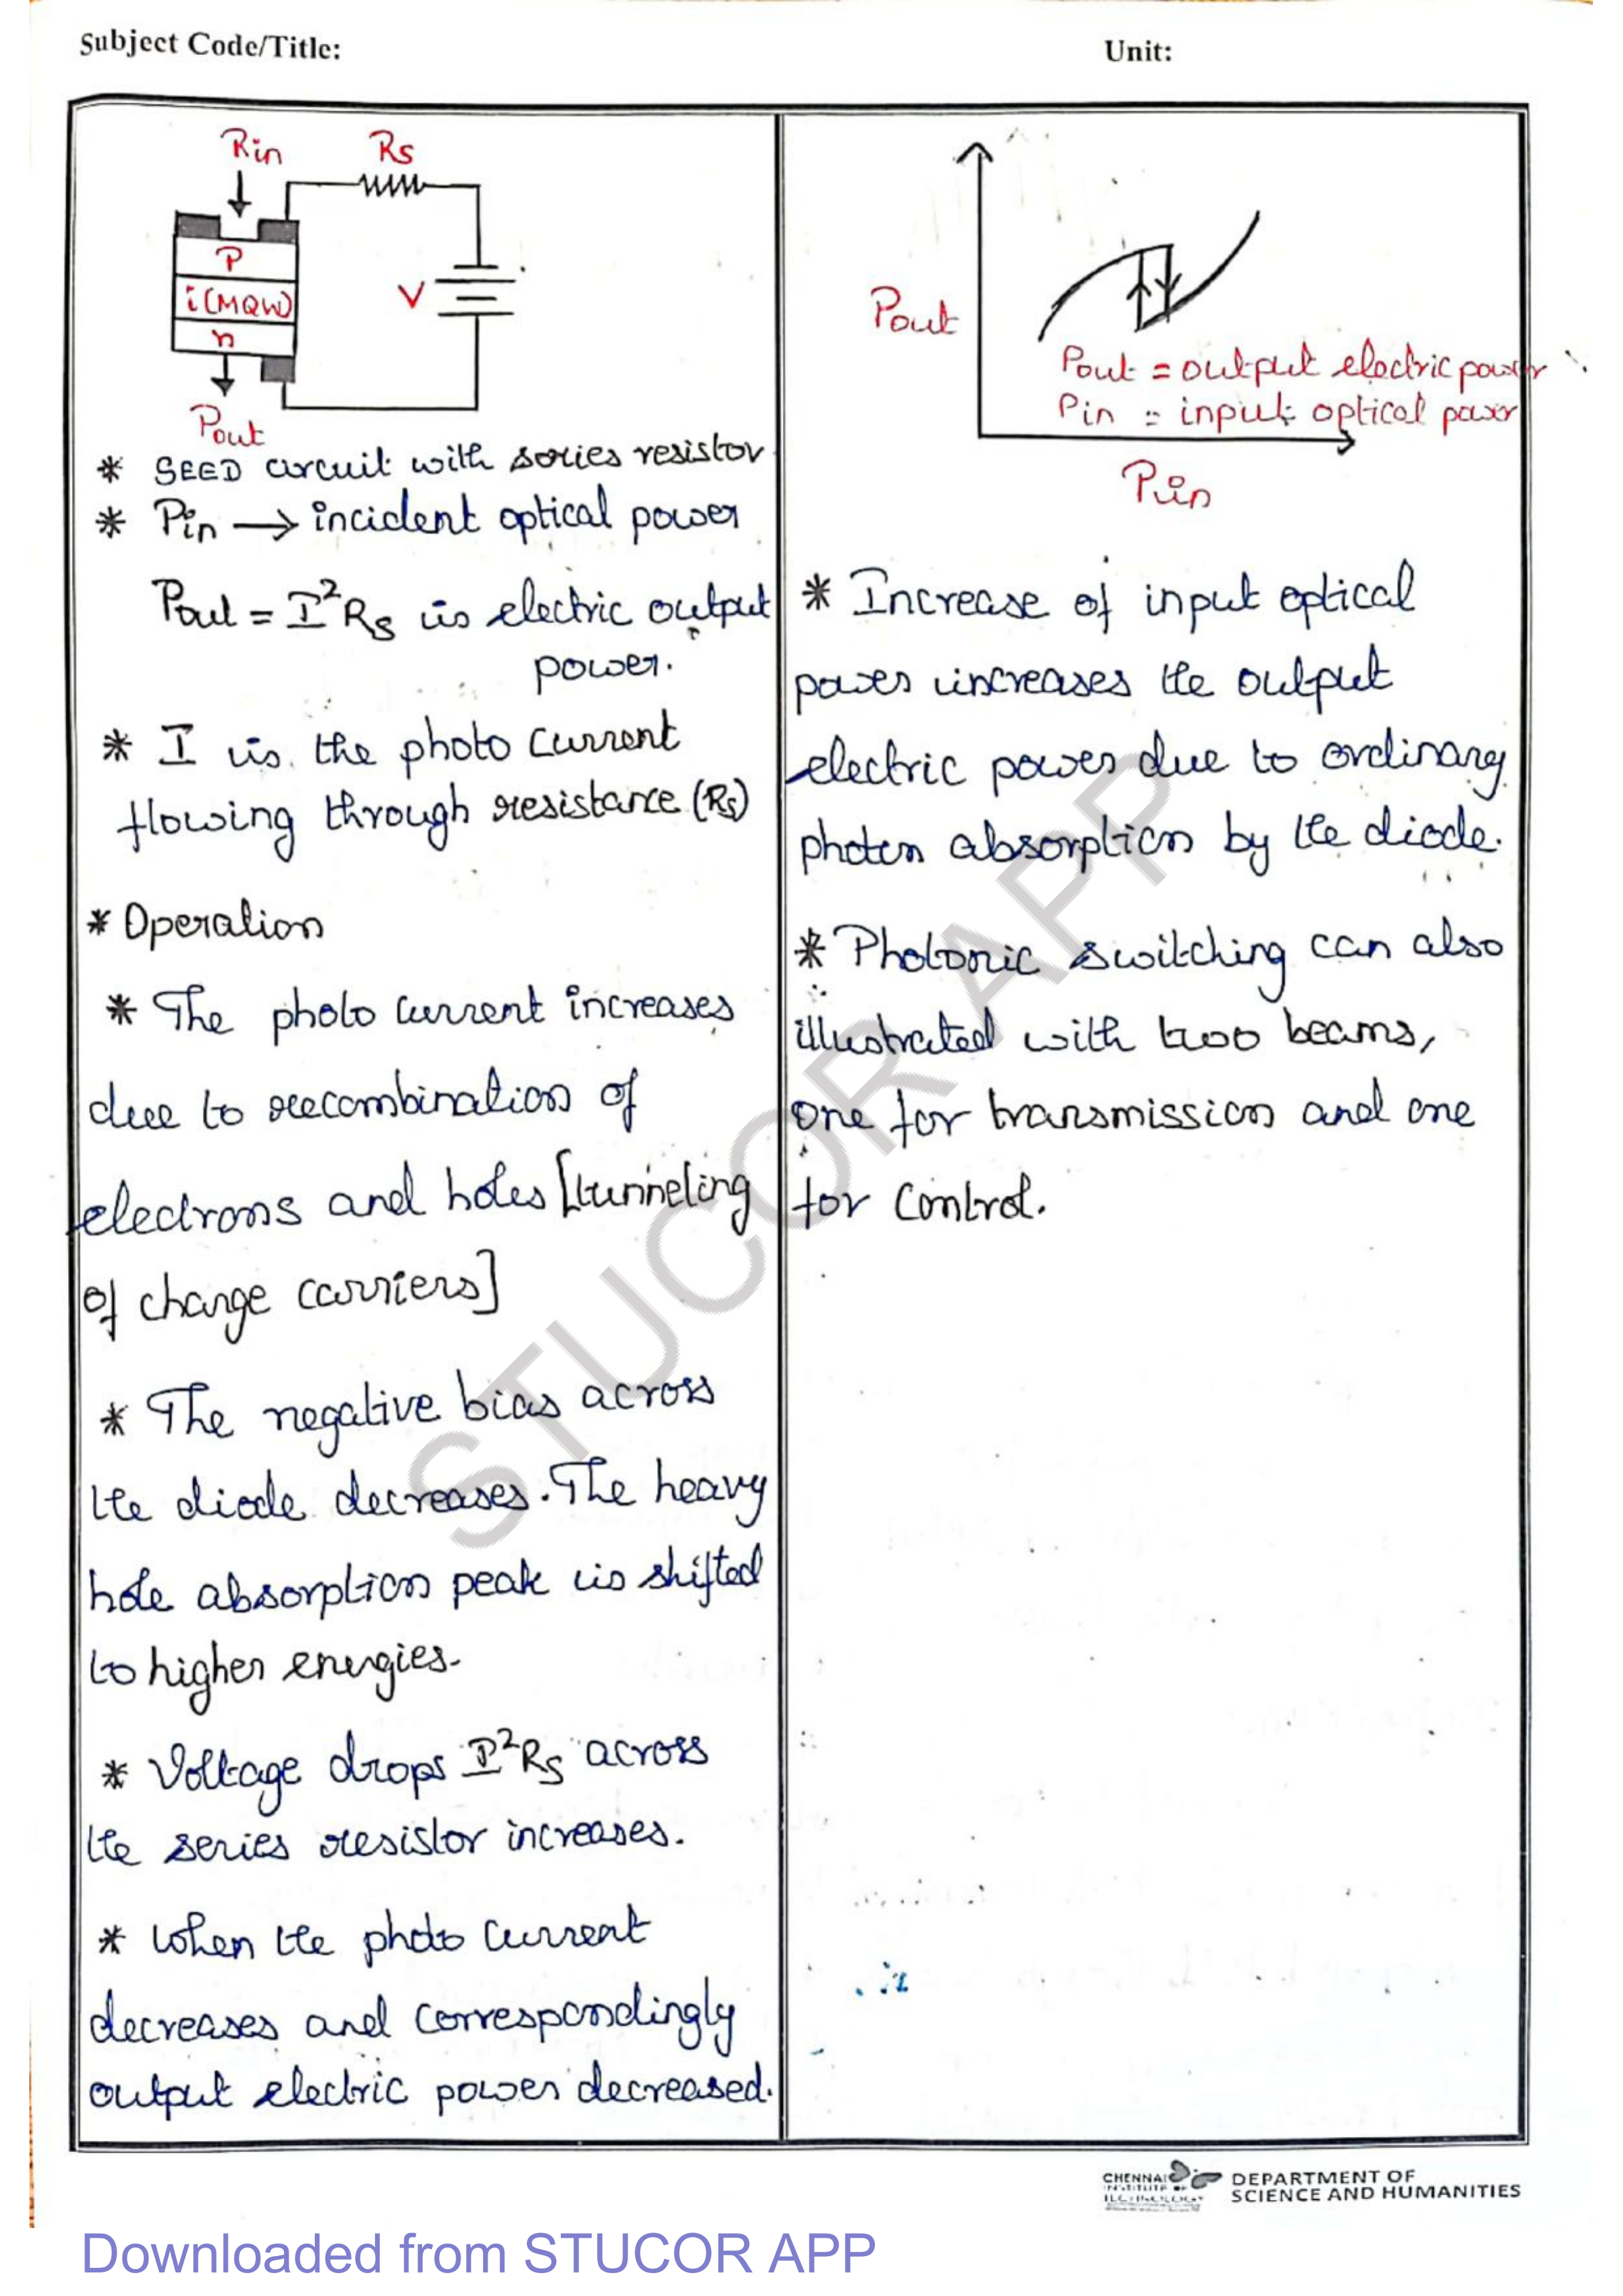 Subject Code/Title:
Unit:
Rin
Rs
P
i(MQW)
n
V
Pout
* SEED circuit with series resistor
* Pin → incident optical power
Pout = I²Rs is electric output
power.
* I is the photo current
flowing through resistance (Rs)
* Operation
* The photo current increases
due to recombination of
electrons and holes [tunneling
of charge carriers]
* The negative bias across
the diode decreases. The heavy
hole absorption peak is shifted
to higher energies.
* Voltage drops I²Rs across
the series resistor increases.
* When the photo current
decreases and correspondingly
output electric power decreased.
Pout
Pout = output electric power
Pin = input optical power
Pin
* Increase of input optical
power increases the output
electric power due to ordinary
photon absorption by the diode.
* Photonic switching can also
illustrated with two beams,
one for transmission and one
for control.
STUCOR APP
CHENNAI
INSTITUTE OF
TECHNOLOGY
DEPARTMENT OF
SCIENCE AND HUMANITIES
Downloaded from STUCOR APP